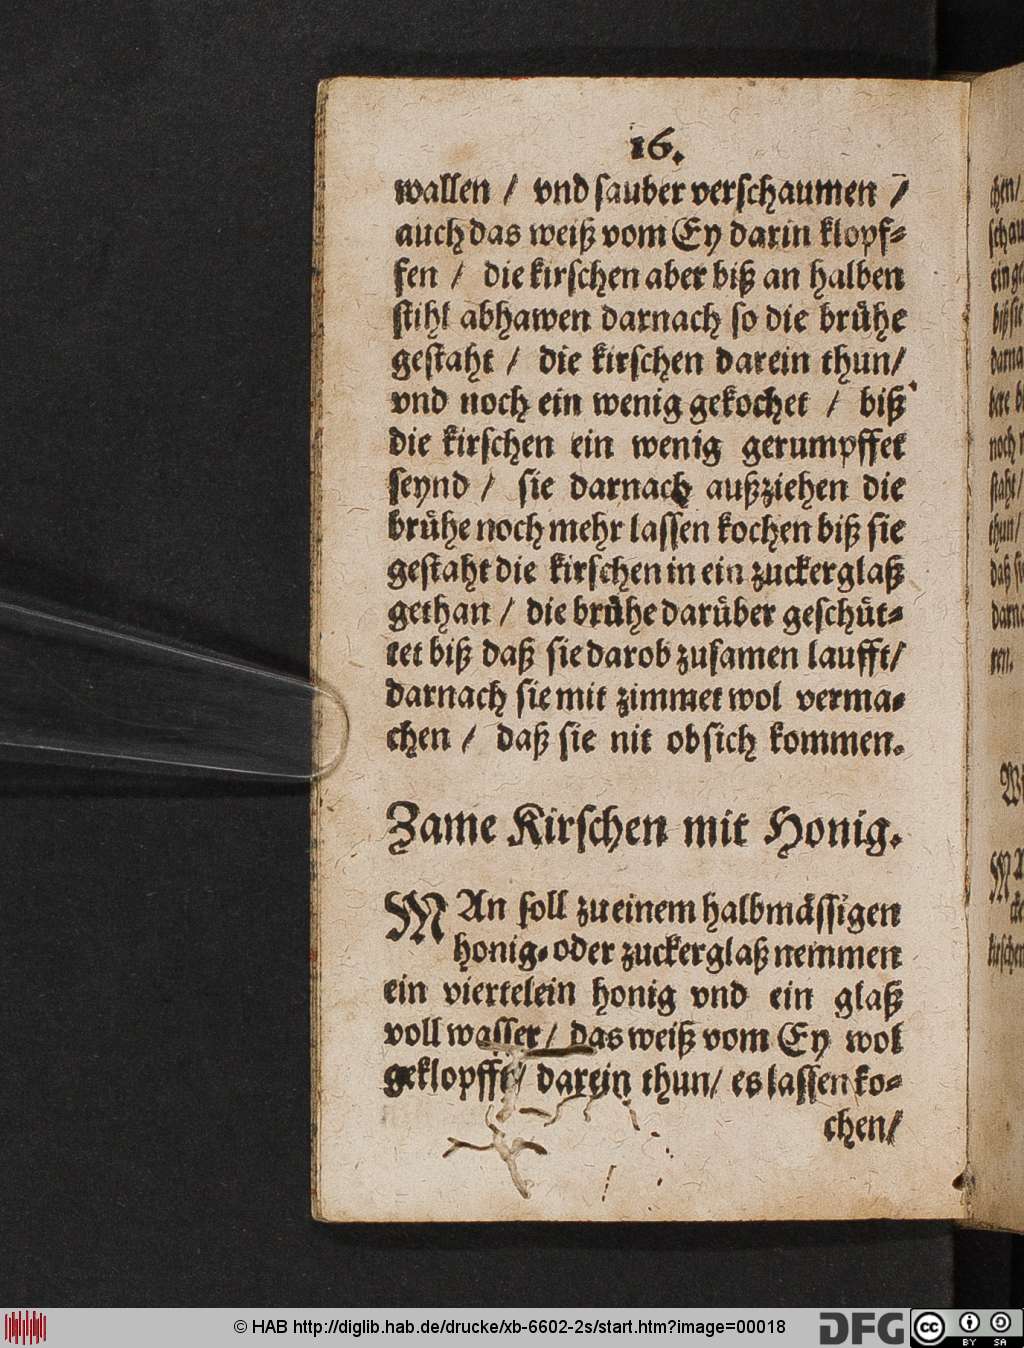 16.
wallen / vnd sauber verschaumen /
auch das weiß vom Ey darin klopf⸗
fen / die kirschen aber biß an halben
stihl abhawen darnach so die brühe
gestaht / die kirschen darein thun/
vnd noch ein wenig gekochet / biß
die kirschen ein wenig gerumpffet
seynd / sie darnach außziehen die
brühe noch mehr lassen kochen biß sie
gestaht die kirschen in ein zuckerglaß
gethan / die brühe darüber geschüt⸗
tet biß daß sie darob zusamen laufft/
darnach sie mit zimmet wol verma⸗
chen / daß sie nit obsich kommen.
Zame Kirschen mit Honig.
MAn soll zu einem halbmässigen
honig⸗ oder zuckerglaß nemmen
ein viertelein honig vnd ein glaß
voll wasser/ das weiß vom Ey wol
geklopfft/ darein thun/ es lassen ko⸗
chen/
chen/
schau
ein ge
biß sie
darna
bere b
noch
staht/
thun/
daß s
darna
ren.
W
kirschen
© HAB http://diglib.hab.de/drucke/xb-6602-2s/start.htm?image=00018
DFG
cc
BY SA